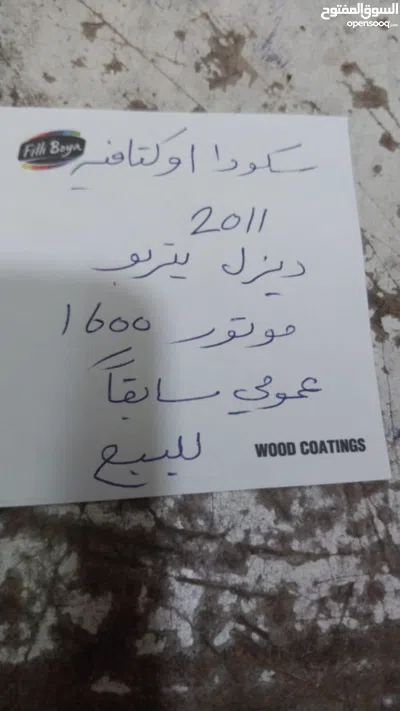 السوق المفتوح
opensooq.com
Filli Boya
سكودا اوكتافيه
2011
ديزل يتربو
موتور 1600
عمومي سابقاً
للبيع
WOOD COATINGS